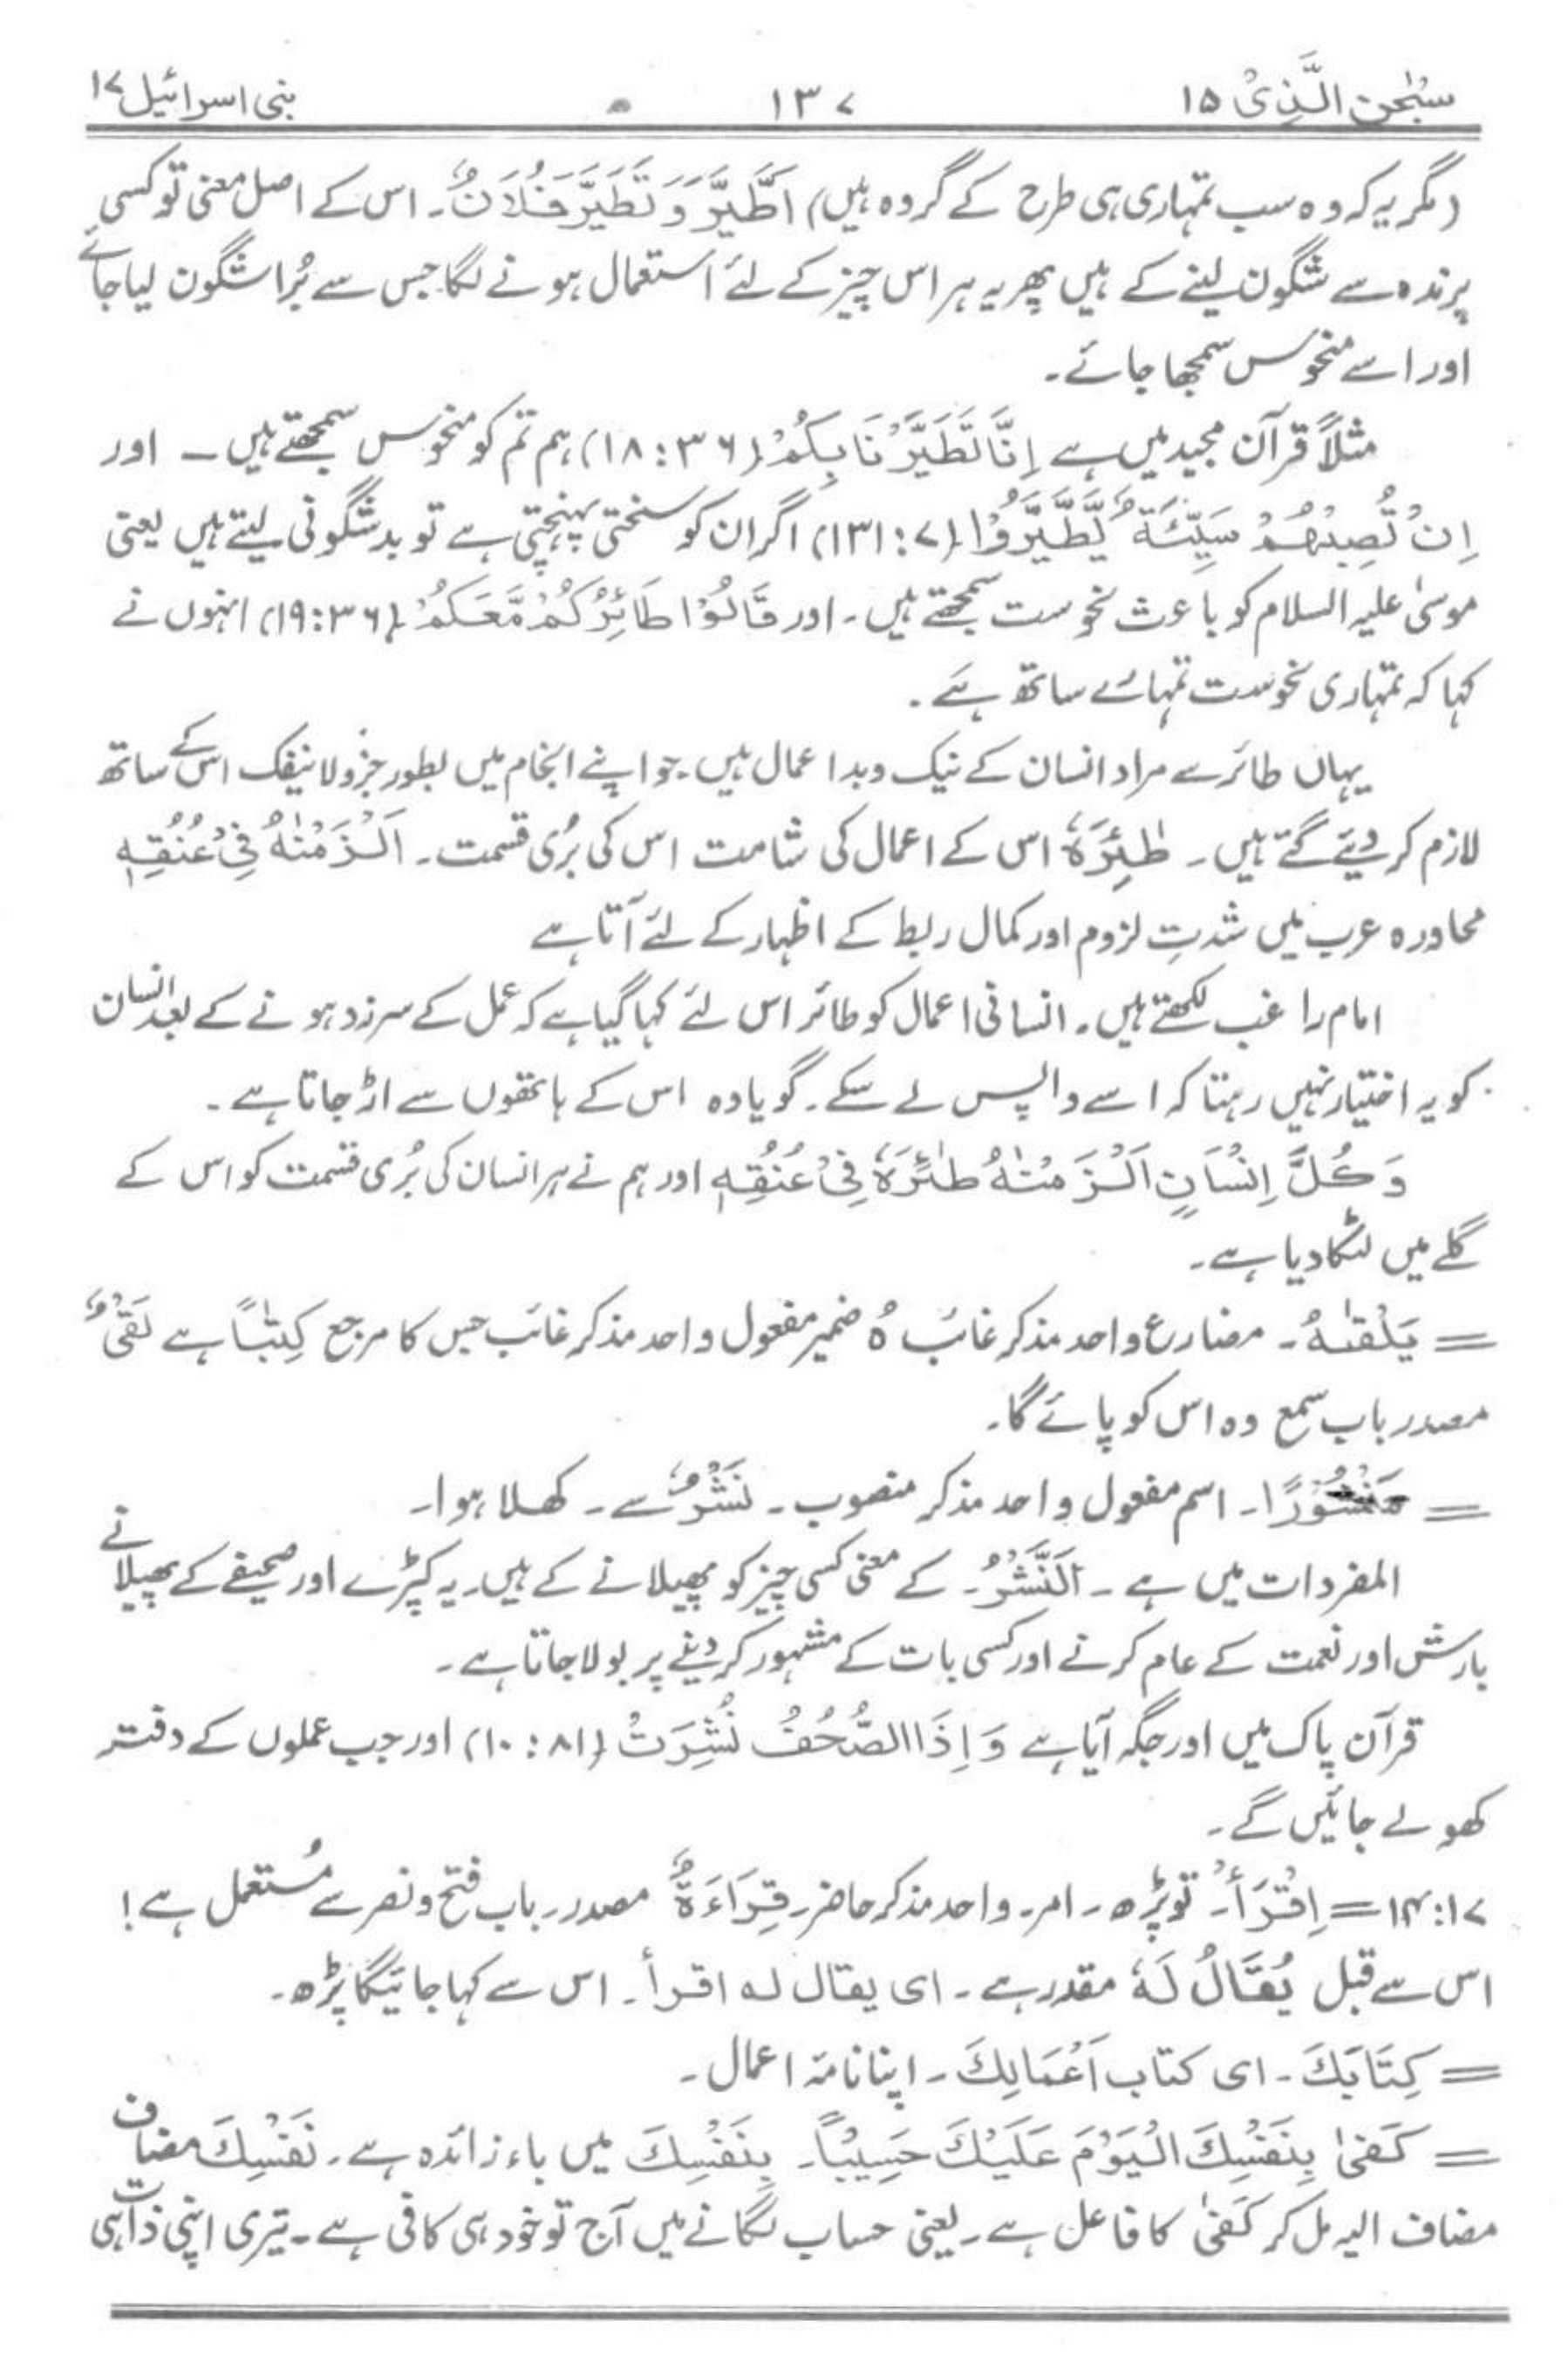 سبٰحن الَّذِیْ ۱۵ ۱۳۷ بنی اسرائیل ۱۷
(مگر یہ کہ وہ سب تمہاری ہی طرح کے گروہ ہیں) اَطَّیَّرَ وَ تَطَیَّرَ فُلَانٌ۔ اس کے اصل معنی تو کسی
پرندہ سے شگون لینے کے ہیں پھر یہ ہر اس چیز کے لئے استعمال ہونے لگا جس سے بُرا شگون لیا جائے
اور اسے منحوس سمجھا جائے۔
مثلاً قرآن مجید میں ہے اِنَّا تَطَیَّرْنَا بِکُمْ (۳۶:۱۸) ہم تم کو منحوس سمجھتے ہیں – اور
اِنْ تُصِبْھُمْ سَیِّئَۃٌ یَّطَّیَّرُوْا (۷:۱۳۱) اگر ان کو سختی پہنچتی ہے تو بد شگونی لیتے ہیں یعنی
موسیٰ علیہ السلام کو باعث نحوست سمجھتے ہیں۔ اور قَالُوْا طَائِرُکُمْ مَّعَکُمْ (۳۶:۱۹) انہوں نے
کہا کہ تمہاری نحوست تمہارے ساتھ ہے۔
یہاں طائر سے مراد انسان کے نیک و بد اعمال ہیں۔ جو اپنے انجام میں بطور جزو لاینفک اس کے ساتھ
لازم کر دیئے گئے ہیں۔ طٰئِرَہٗ اس کے اعمال کی شامت اس کی بُری قسمت۔ اَلْزَمْنٰہُ فِیْ عُنُقِہٖ
محاورہ عرب میں شدتِ لزوم اور کمال ربط کے اظہار کے لئے آتا ہے
امام راغب لکھتے ہیں۔ انسانی اعمال کو طائر اس لئے کہا گیا ہے کہ عمل کے سرزد ہونے کے بعد انسان
کو یہ اختیار نہیں رہتا کہ اسے واپس لے سکے۔ گویا وہ اس کے ہاتھوں سے اڑ جاتا ہے۔
وَ کُلَّ اِنْسَانٍ اَلْزَمْنٰہُ طٰئِرَہٗ فِیْ عُنُقِہٖ اور ہم نے ہر انسان کی بُری قسمت کو اس کے
گلے میں لٹکا دیا ہے۔
= یَلْقٰىہُ۔ مضارع واحد مذکر غائب ہُ ضمیر مفعول واحد مذکر غائب جس کا مرجع کِتٰباً ہے لَقْیٌ
مصدر باب سمع وہ اس کو پائے گا۔
= مَنْشُوْرًا۔ اسم مفعول واحد مذکر منصوب۔ نَشْرٌ سے۔ کھلا ہوا۔
المفردات میں ہے۔ اَلنَّشْرُ۔ کے معنی کسی چیز کو پھیلانے کے ہیں۔ یہ کپڑے اور صحیفے کے پھیلانے
بارش اور نعمت کے عام کرنے اور کسی بات کے مشہور کر دینے پر بولا جاتا ہے۔
قرآن پاک میں اور جگہ آیا ہے وَ اِذَا الصُّحُفُ نُشِرَتْ (۸۱:۱۰) اور جب عملوں کے دفتر
کھولے جائیں گے۔
۱۷:۱۴ = اِقْرَأْ۔ تو پڑھ۔ امر۔ واحد مذکر حاضر۔ قِرَاءَۃٌ مصدر۔ باب فتح و نصر سے مُستعمل ہے!
اس سے قبل یُقَالُ لَہٗ مقدر ہے۔ ای یقال لہ اقرأ۔ اس سے کہا جائیگا پڑھ۔
= کِتَابَکَ۔ ای کتاب اَعْمَالِکَ۔ اپنا نامۂ اعمال۔
= کَفٰی بِنَفْسِکَ الْیَوْمَ عَلَیْکَ حَسِیْبًا۔ بِنَفْسِکَ میں باء زائدہ ہے۔ نَفْسِکَ مضاف
مضاف الیہ مل کر کَفٰی کا فاعل ہے۔ یعنی حساب لگانے میں آج تو خود ہی کافی ہے۔ تیری اپنی ذات ہی